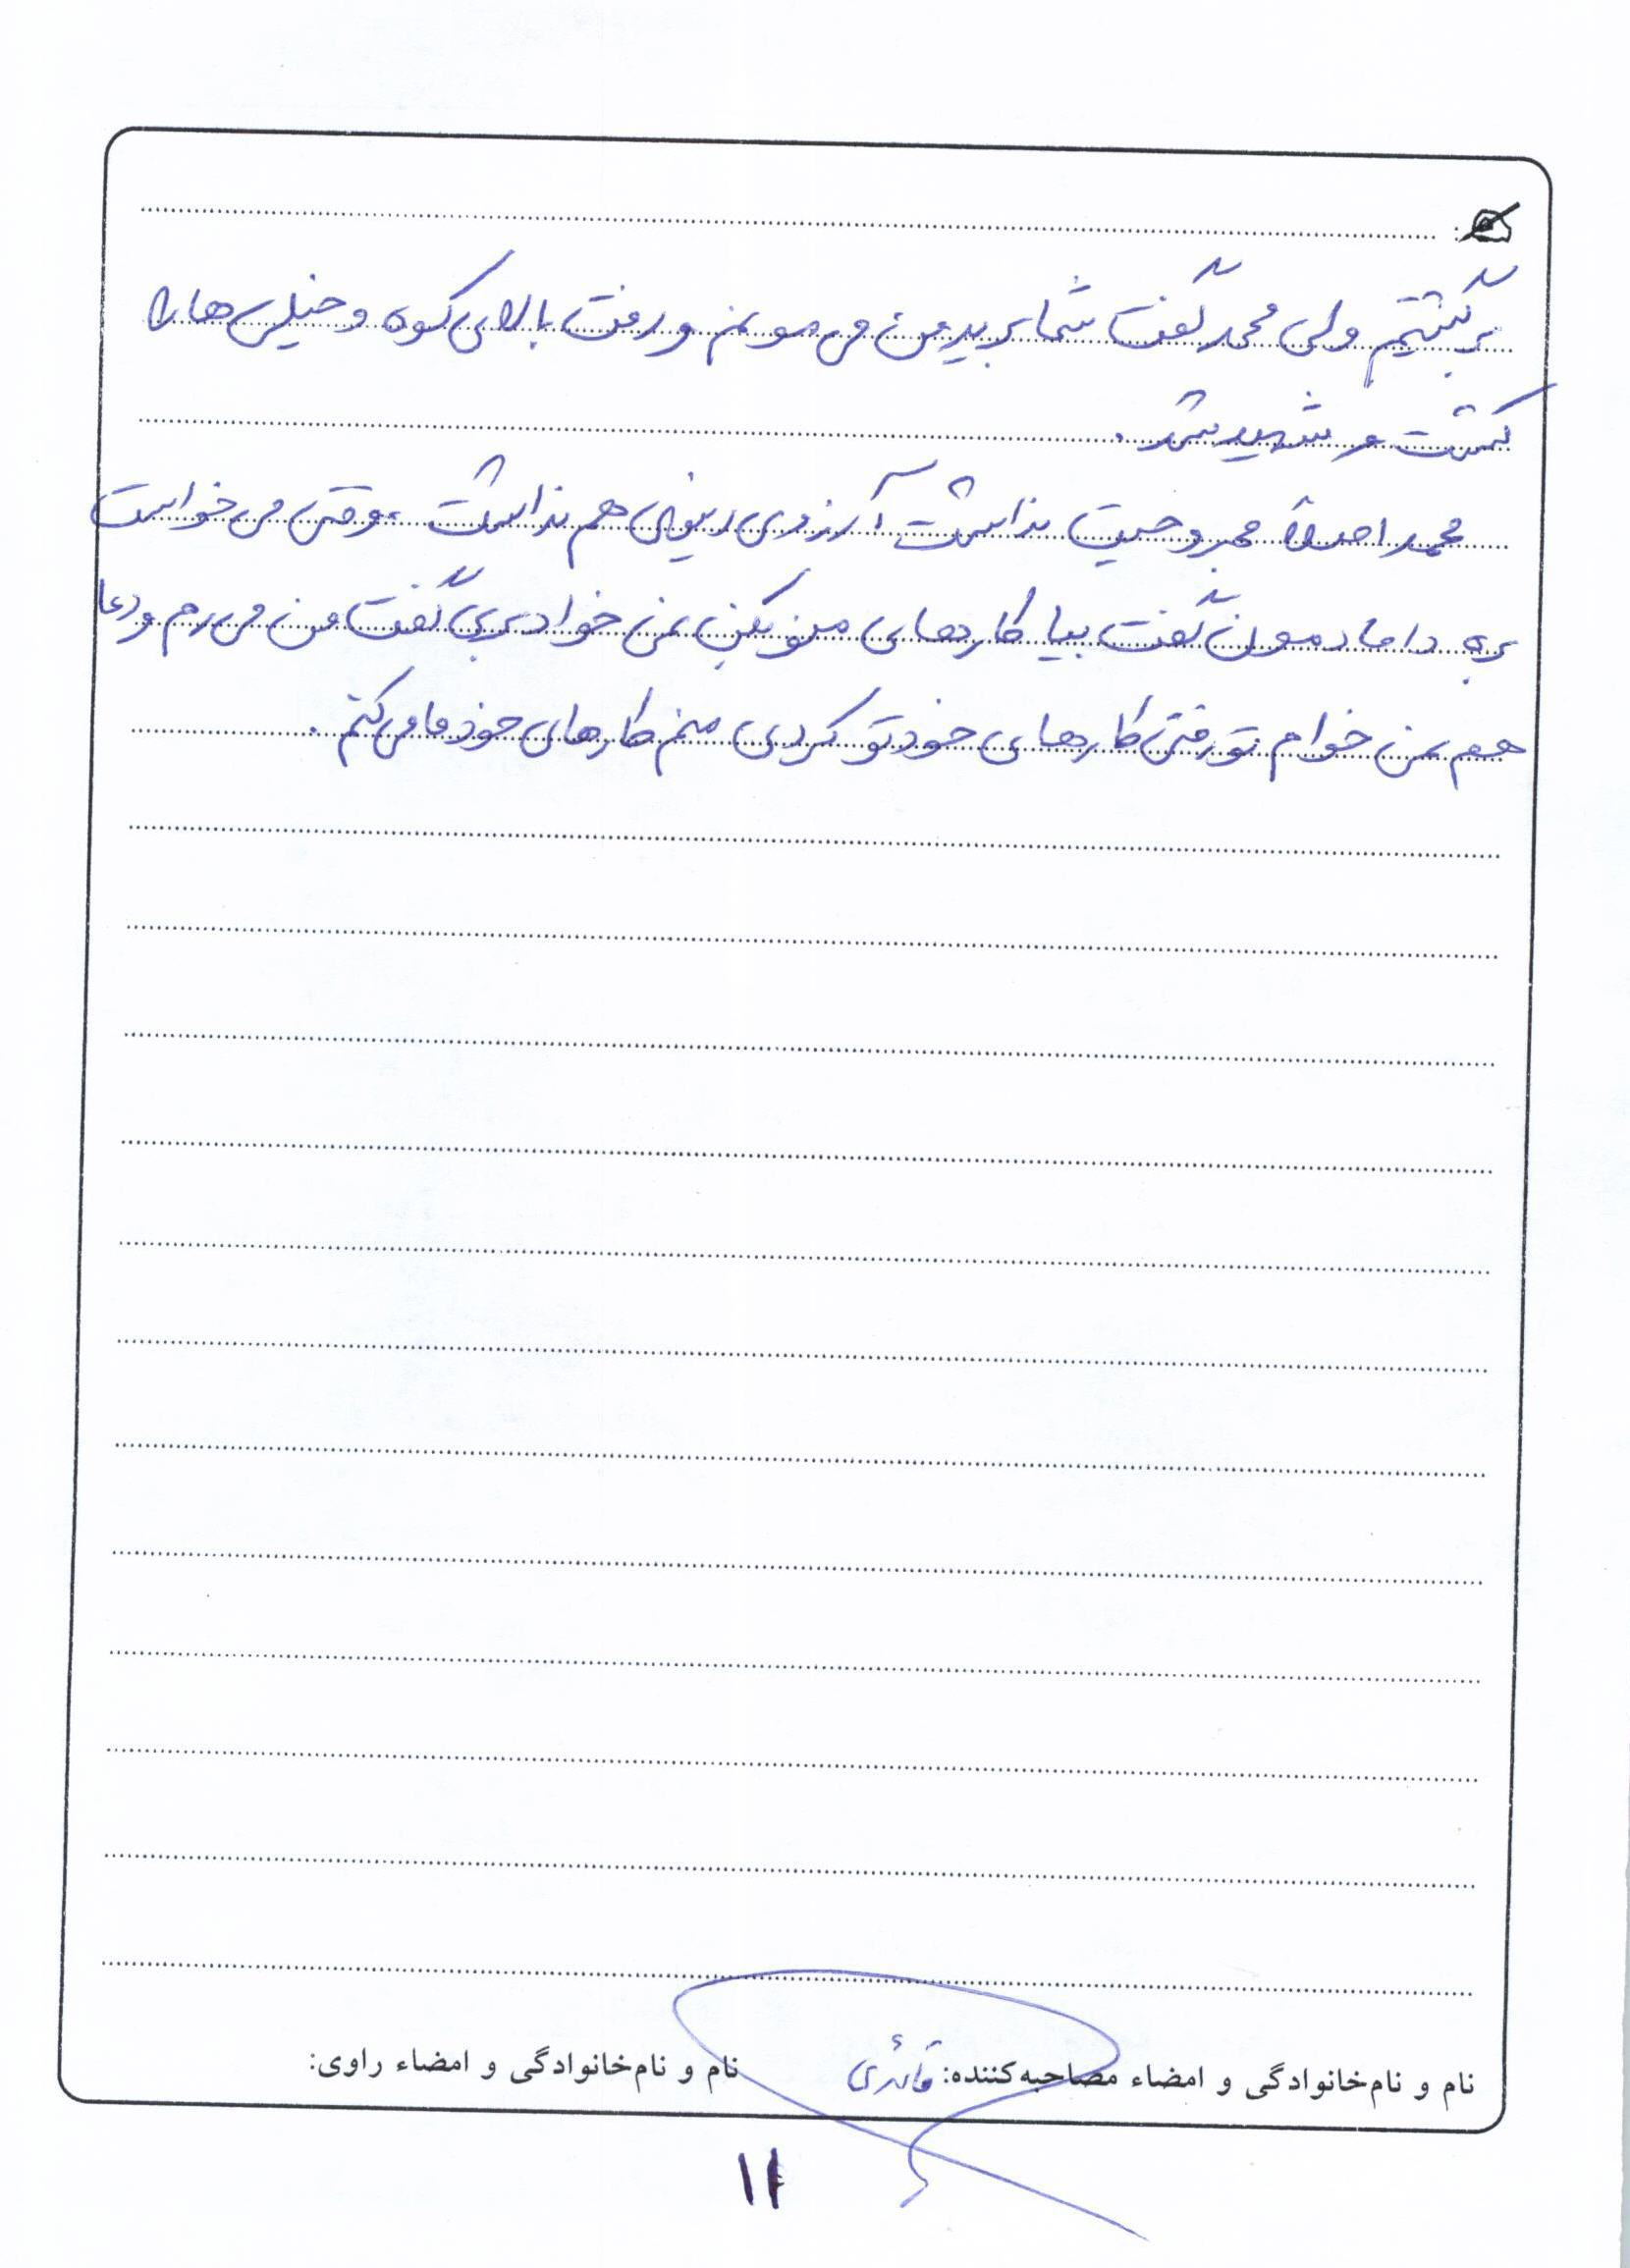 برگشتیم ولی محمد گفت شما برید من می مونم و رفت بالای کوه و خیلی ها را
کشت و شهید شد.
محمد اصلاً مجروحیت نداشت آرزوی دنیوی هم نداشت، وقتی می خواست
بره دامادمون گفت بیا کارهای منو بکن نمی خواد بری گفت من می رم و دعا
هم نمی خوام تو رفتی کارهای خودتو کردی منم کارهای خودما می کنم.
نام و نام‌خانوادگی و امضاء مصاحبه‌کننده: قائدی نام و نام‌خانوادگی و امضاء راوی:
۱۱